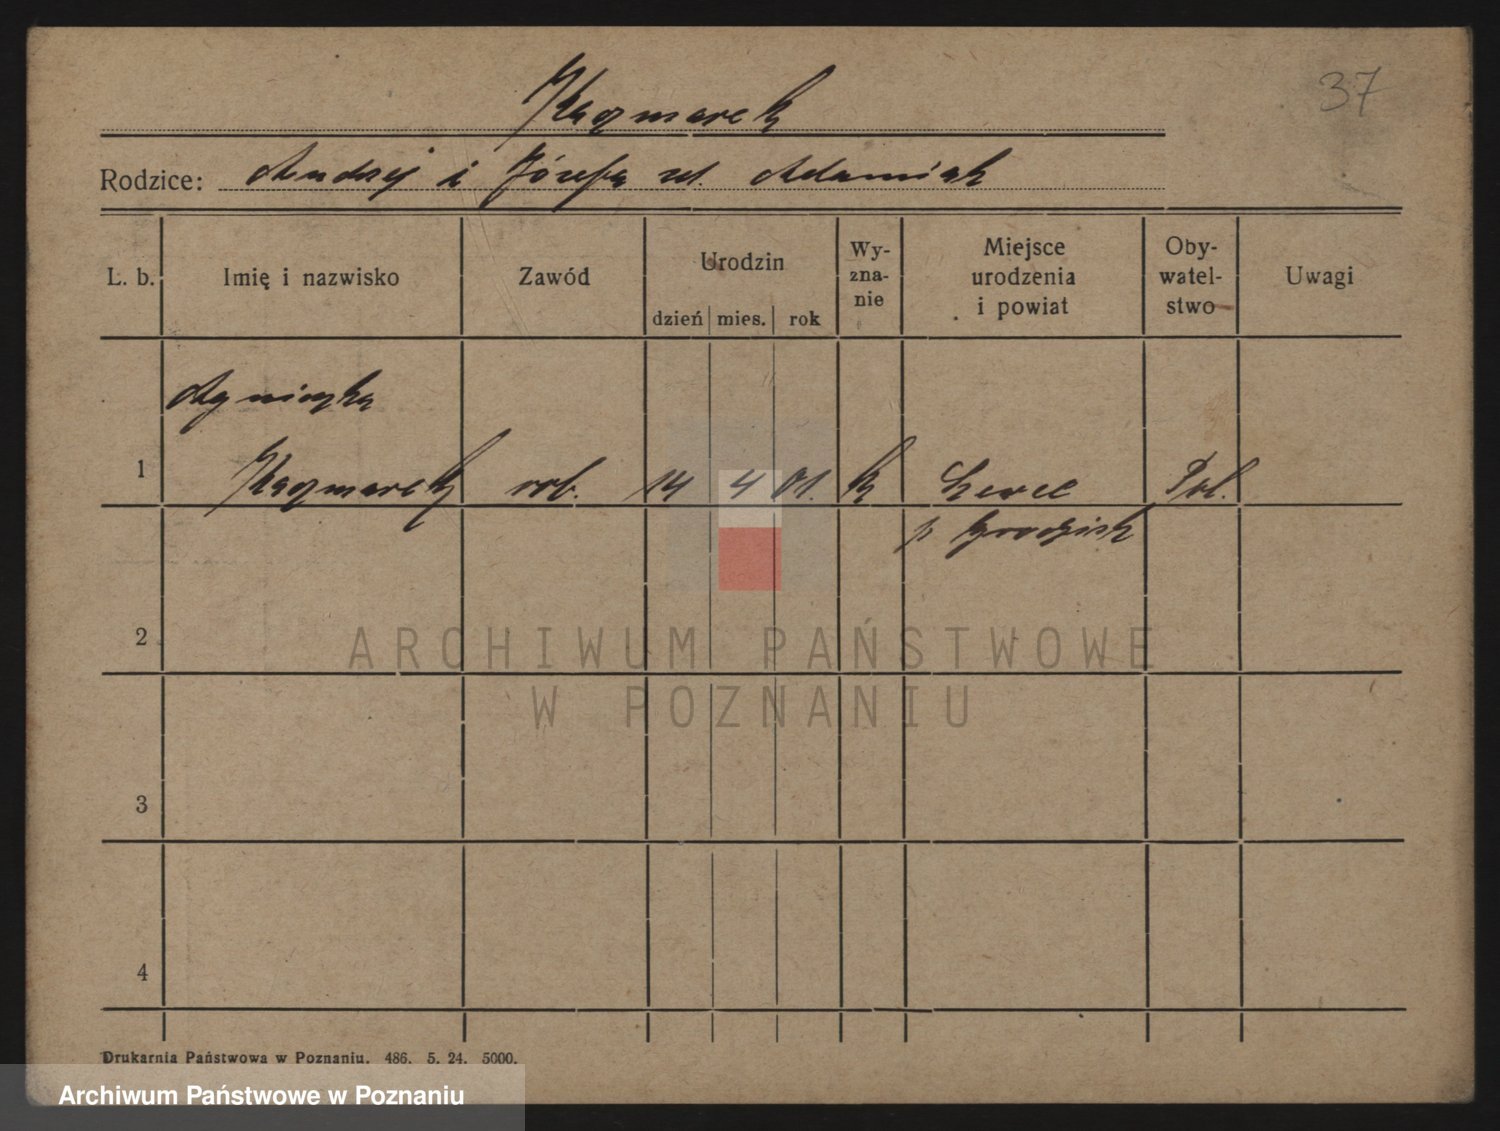 37
Kaczmarek
Rodzice: Andrzej i Józefa ur. Adamiak
L. b. Imię i nazwisko Zawód Urodzin dzień mies. rok Wy-znanie Miejsce urodzenia i powiat Oby-watel-stwo Uwagi
Agnieszka
1 Kaczmarek rob. 14 4 01. k Pol.
p Grodzisk
2
ARCHIWUM PAŃSTWOWE
W POZNANIU
3
4
Drukarnia Państwowa w Poznaniu. 486. 5. 24. 5000.
Archiwum Państwowe w Poznaniu